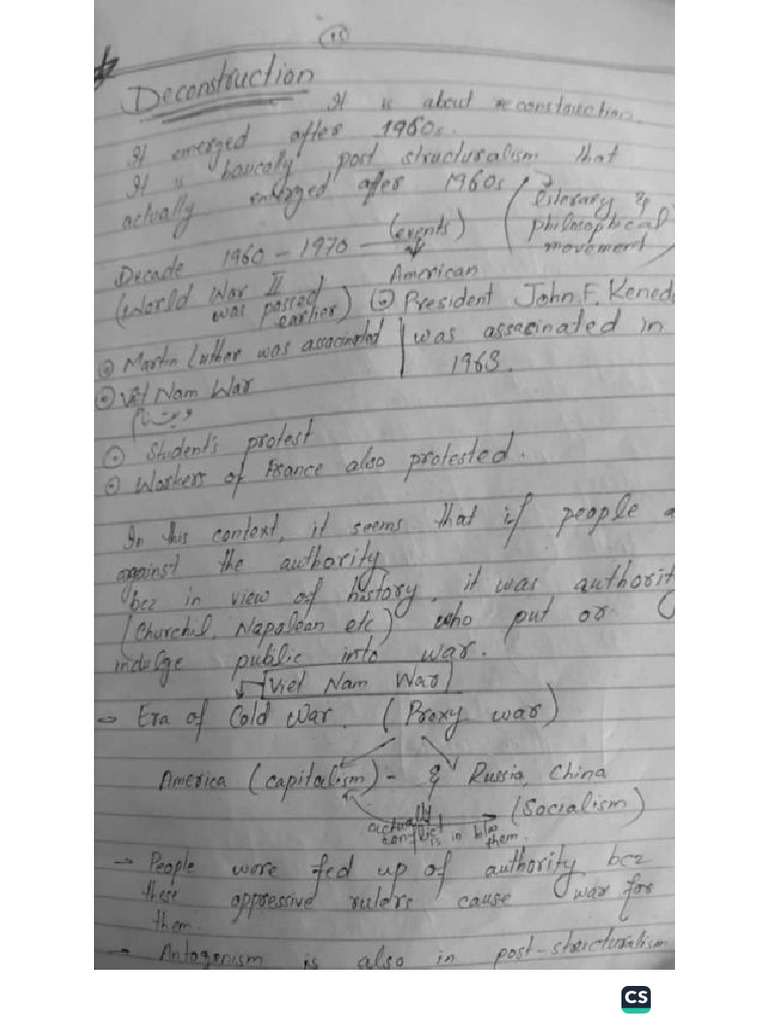 15
Deconstruction
It is about reconstruction.
It emerged after 1960s.
It is basically post structuralism that
actually emerged after 1960s
(literary &
philosophical
movement)
Decade 1960 - 1970 - (events)
(World War II
was passed
earlier)
American
President John F. Kened
was assacinated in
1963.
Martin Luther was assacinated
Viet Nam War
ویتنام
Student's protest
Workers of France also protested.
In this context, it seems that if people a
against the authority
bcz in view of history, it was authorit
(Churchil, Napalean etc) who put or
indulge public into war.
Viet Nam War
→ Era of Cold War. (Proxy war)
America (capitalism) - & Russia, China
(Socialism)
actual
conflict is in b/w
them.
→ People were fed up of authority bcz
these oppressive rulers cause war for
them.
→ Antagonism is also in post-structuralism
CS